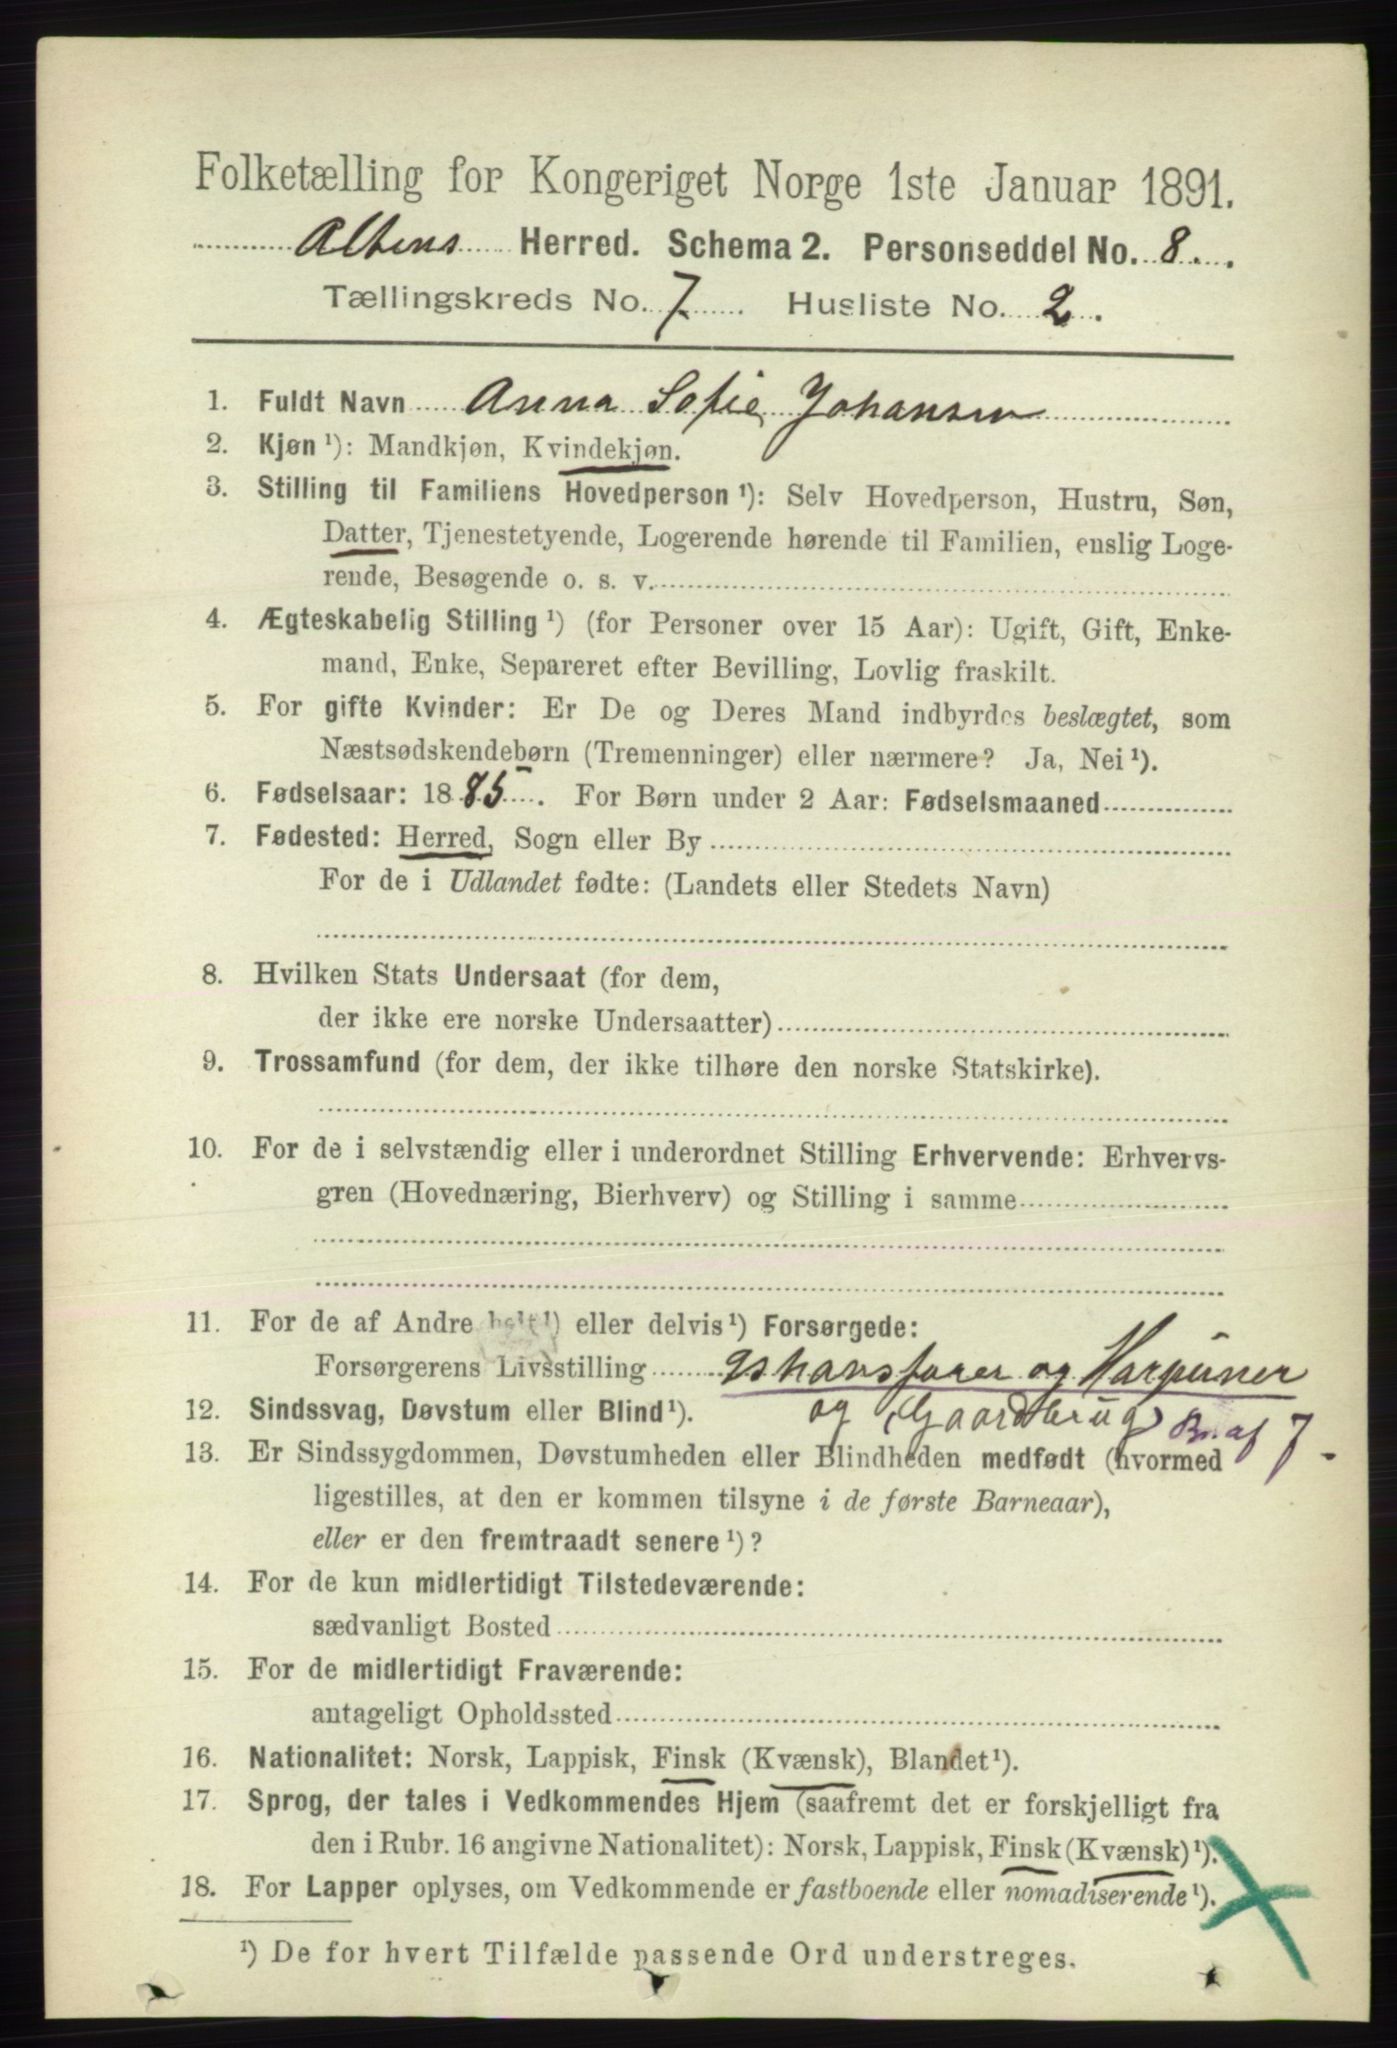 Folketælling for Kongeriget Norge 1ste Januar 1891.
Altens Herred. Schema 2. Personseddel No. 8.
Tællingskreds No. 7. Husliste No. 2.
1. Fuldt Navn Anna Sofie Johansen
2. Kjøn ¹): Mandkjøn, Kvindekjøn.
3. Stilling til Familiens Hovedperson ¹): Selv Hovedperson, Hustru, Søn,
Datter, Tjenestetyende, Logerende hørende til Familien, enslig Loge-
rende, Besøgende o. s. v.
4. Ægteskabelig Stilling ¹) (for Personer over 15 Aar): Ugift, Gift, Enke-
mand, Enke, Separeret efter Bevilling, Lovlig fraskilt.
5. For gifte Kvinder: Er De og Deres Mand indbyrdes beslægtet, som
Næstsødskendebørn (Tremenninger) eller nærmere? Ja, Nei ¹).
6. Fødselsaar: 1885. For Børn under 2 Aar: Fødselsmaaned
7. Fødested: Herred, Sogn eller By
For de i Udlandet fødte: (Landets eller Stedets Navn)
8. Hvilken Stats Undersaat (for dem,
der ikke ere norske Undersaatter)
9. Trossamfund (for dem, der ikke tilhøre den norske Statskirke).
10. For de i selvstændig eller i underordnet Stilling Erhvervende: Erhvervs-
gren (Hovednæring, Bierhverv) og Stilling i samme
11. For de af Andre helt ¹) eller delvis ¹) Forsørgede:
Forsørgerens Livsstilling Ishavsfarer og Harpuner
12. Sindssvag, Døvstum eller Blind ¹). og (Gaardbrug) Br. af 7
13. Er Sindssygdommen, Døvstumheden eller Blindheden medfødt (hvormed
ligestilles, at den er kommen tilsyne i de første Barneaar),
eller er den fremtraadt senere ¹)?
14. For de kun midlertidigt Tilstedeværende:
sædvanligt Bosted
15. For de midlertidigt Fraværende:
antageligt Opholdssted
16. Nationalitet: Norsk, Lappisk, Finsk (Kvænsk), Blandet ¹).
17. Sprog, der tales i Vedkommendes Hjem (saafremt det er forskjelligt fra
den i Rubr. 16 angivne Nationalitet): Norsk, Lappisk, Finsk (Kvænsk) ¹).
18. For Lapper oplyses, om Vedkommende er fastboende eller nomadiserende ¹).
¹) De for hvert Tilfælde passende Ord understreges.